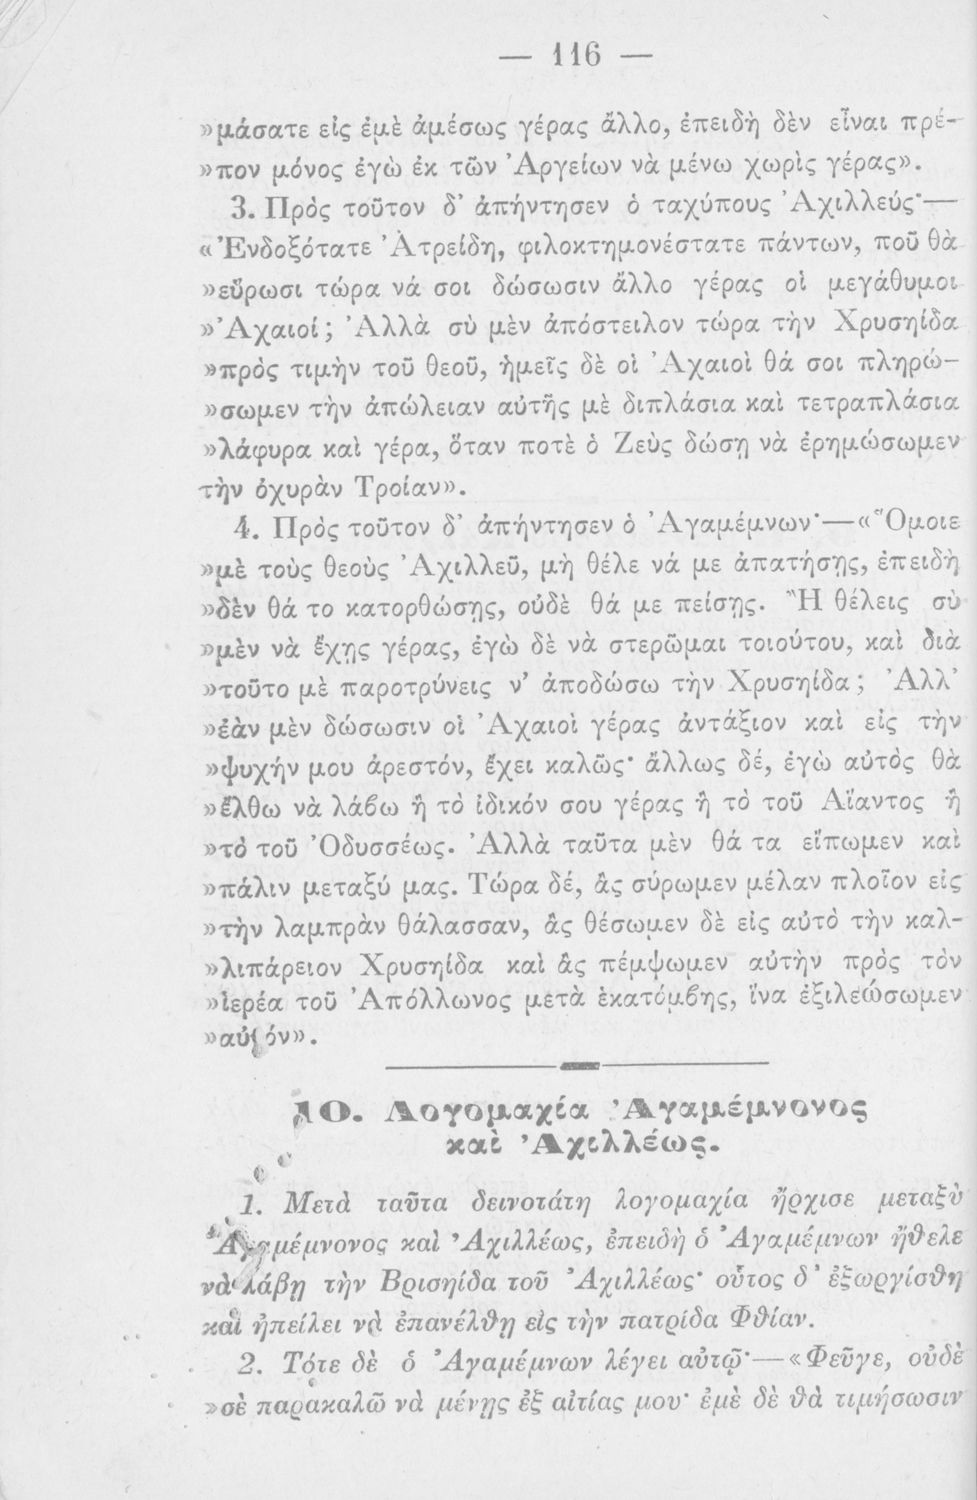 — 116 —
»μάσατε εἰς ἐμὲ ἀμέσως γέρας ἄλλο, ἐπειδὴ δὲν εἶναι πρέ-
»πον μόνος ἐγὼ ἐκ τῶν Ἀργείων νὰ μένω χωρὶς γέρας».
3. Πρὸς τοῦτον δ' ἀπήντησεν ὁ ταχύπους Ἀχιλλεύς·—
«Ἐνδοξότατε Ἀτρείδη, φιλοκτημονέστατε πάντων, ποῦ θὰ
»εὕρωσι τώρα νά σοι δώσωσιν ἄλλο γέρας οἱ μεγάθυμοι
»Ἀχαιοί; Ἀλλὰ σὺ μὲν ἀπόστειλον τώρα τὴν Χρυσηίδα
»πρὸς τιμὴν τοῦ θεοῦ, ἡμεῖς δὲ οἱ Ἀχαιοὶ θά σοι πληρώ-
»σωμεν τὴν ἀπώλειαν αὐτῆς μὲ διπλάσια καὶ τετραπλάσια
»λάφυρα καὶ γέρα, ὅταν ποτὲ ὁ Ζεὺς δώσῃ νὰ ἐρημώσωμεν
τὴν ὀχυρὰν Τροίαν».
4. Πρὸς τοῦτον δ' ἀπήντησεν ὁ Ἀγαμέμνων·—«Ὅμοιε
»μὲ τοὺς θεοὺς Ἀχιλλεῦ, μὴ θέλε νά με ἀπατήσῃς, ἐπειδὴ
»δὲν θά το κατορθώσῃς, οὐδὲ θά με πείσῃς. Ἢ θέλεις σὺ
»μὲν νὰ ἔχῃς γέρας, ἐγὼ δὲ νὰ στερῶμαι τοιούτου, καὶ διὰ
»τοῦτο μὲ παροτρύνεις ν' ἀποδώσω τὴν Χρυσηίδα; Ἀλλ'
»ἐὰν μὲν δώσωσιν οἱ Ἀχαιοὶ γέρας ἀντάξιον καὶ εἰς τὴν
»ψυχήν μου ἀρεστόν, ἔχει καλῶς· ἄλλως δέ, ἐγὼ αὐτὸς θὰ
»ἔλθω νὰ λάβω ἢ τὸ ἰδικόν σου γέρας ἢ τὸ τοῦ Αἴαντος ἢ
»τὸ τοῦ Ὀδυσσέως. Ἀλλὰ ταῦτα μὲν θά τα εἴπωμεν καὶ
»πάλιν μεταξύ μας. Τώρα δέ, ἂς σύρωμεν μέλαν πλοῖον εἰς
»τὴν λαμπρὰν θάλασσαν, ἂς θέσωμεν δὲ εἰς αὐτὸ τὴν καλ-
»λιπάρειον Χρυσηίδα καὶ ἂς πέμψωμεν αὐτὴν πρὸς τὸν
»ἱερέα τοῦ Ἀπόλλωνος μετὰ ἑκατόμβης, ἵνα ἐξιλεώσωμεν
»αὐτόν».
10. Λογομαχία Ἀγαμέμνονος
καὶ Ἀχιλλέως.
1. Μετὰ ταῦτα δεινοτάτη λογομαχία ἤρχισε μεταξὺ
Ἀγαμέμνονος καὶ Ἀχιλλέως, ἐπειδὴ ὁ Ἀγαμέμνων ἤθελε
νὰ λάβῃ τὴν Βρισηίδα τοῦ Ἀχιλλέως· οὗτος δ' ἐξωργίσθη
καὶ ἠπείλει νὰ ἐπανέλθῃ εἰς τὴν πατρίδα Φθίαν.
2. Τότε δὲ ὁ Ἀγαμέμνων λέγει αὐτῷ·—«Φεῦγε, οὐδὲ
»σὲ παρακαλῶ νὰ μένῃς ἐξ αἰτίας μου· ἐμὲ δὲ θὰ τιμήσωσιν